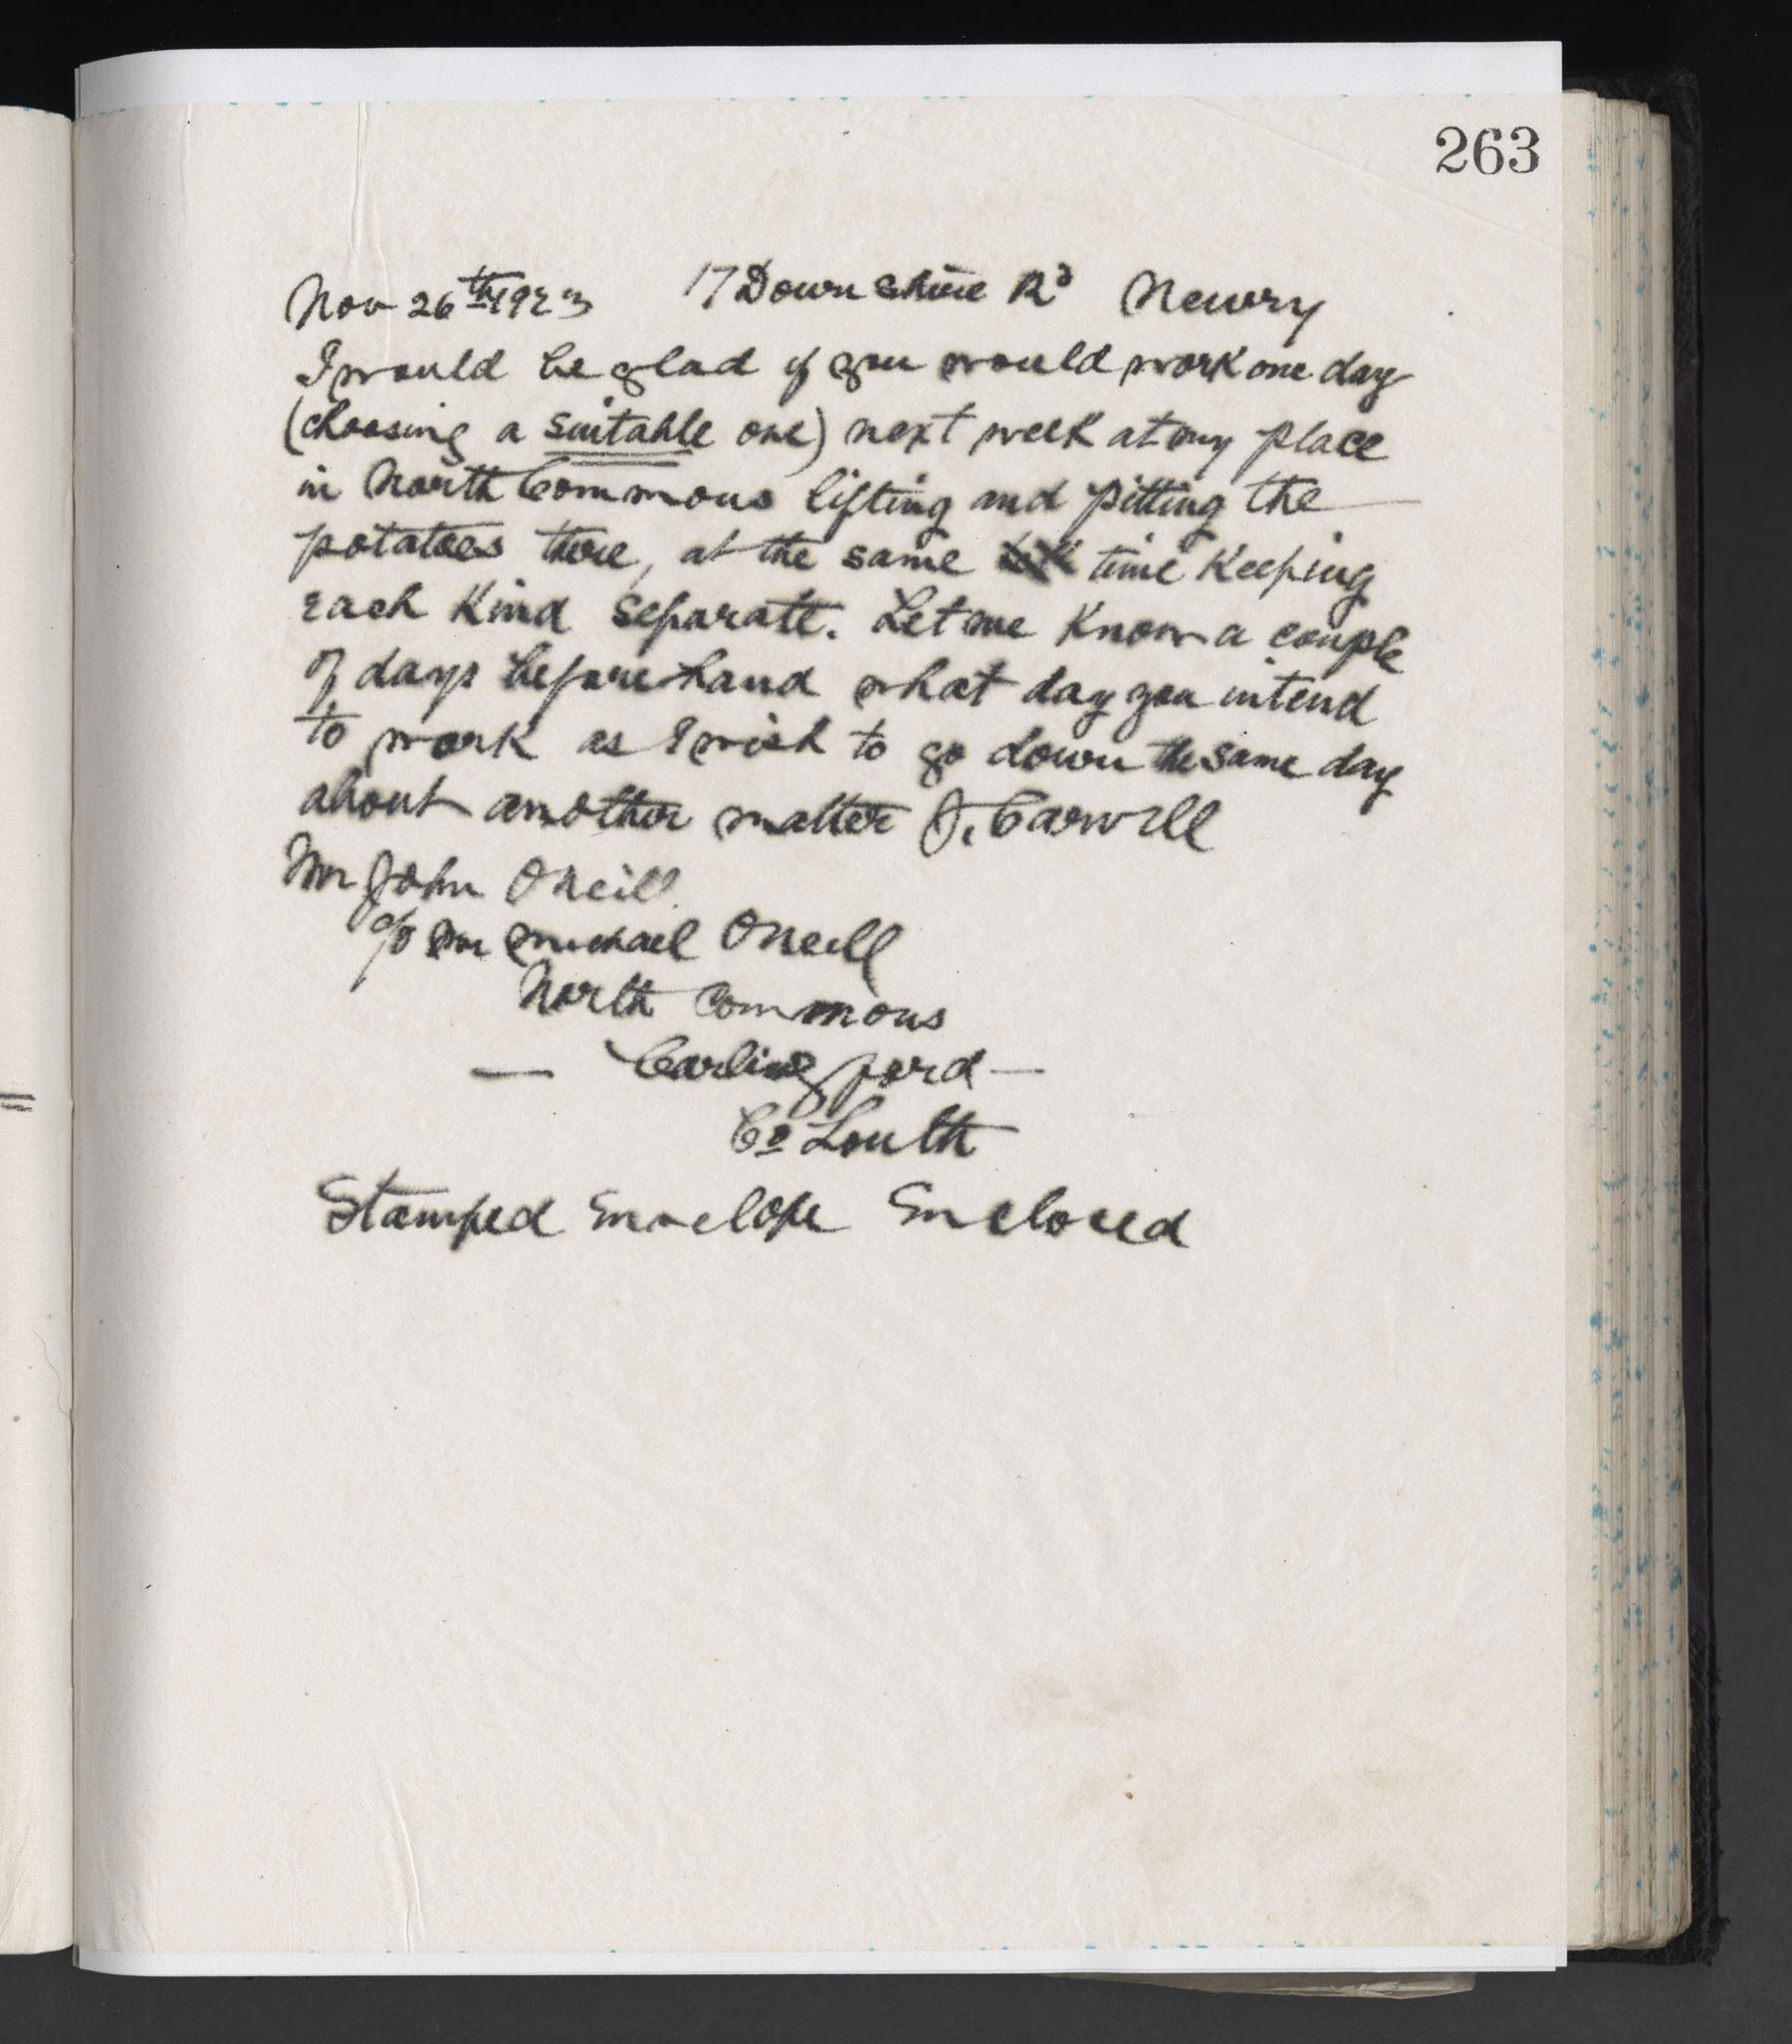 263
Nov 26th 1923 17 Downshire Rd Newry
I would be glad if you would work one day
(choosing a suitable one) next week at my place
in North Commons lifting and pitting the
potatoes there, at the same time keeping
each kind separate. Let me know a couple
of days beforehand what day you intend
to work as I wish to go down the same day
about another matter J. Carvill
Mr John O'Neill
c/o Mr Michael O'Neill
North Commons
— Carlingford —
Co Louth
Stamped Envelope Enclosed